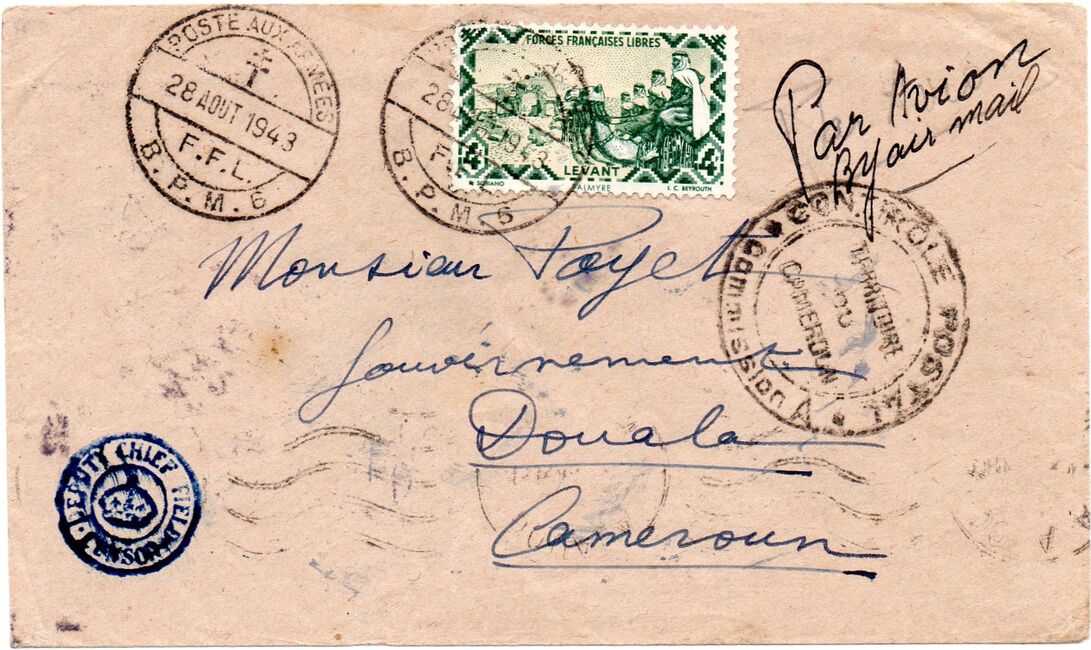 POSTE AUX ARMÉES
28 AOUT 1943
F.F.L.
B.P.M. 6
28
1943
B.P.M. 6
FORCES FRANÇAISES LIBRES
4
4
LEVANT
SORIANO
PALMYRE
I. C. BEYROUTH
Par Avion
By air mail
CONTROLE POSTAL
Commission A
TERRITOIRE
DU
CAMEROUN
Monsieur Poyet
Gouvernement
Douala
Cameroun
DEPUTY CHIEF FIELD
CENSOR